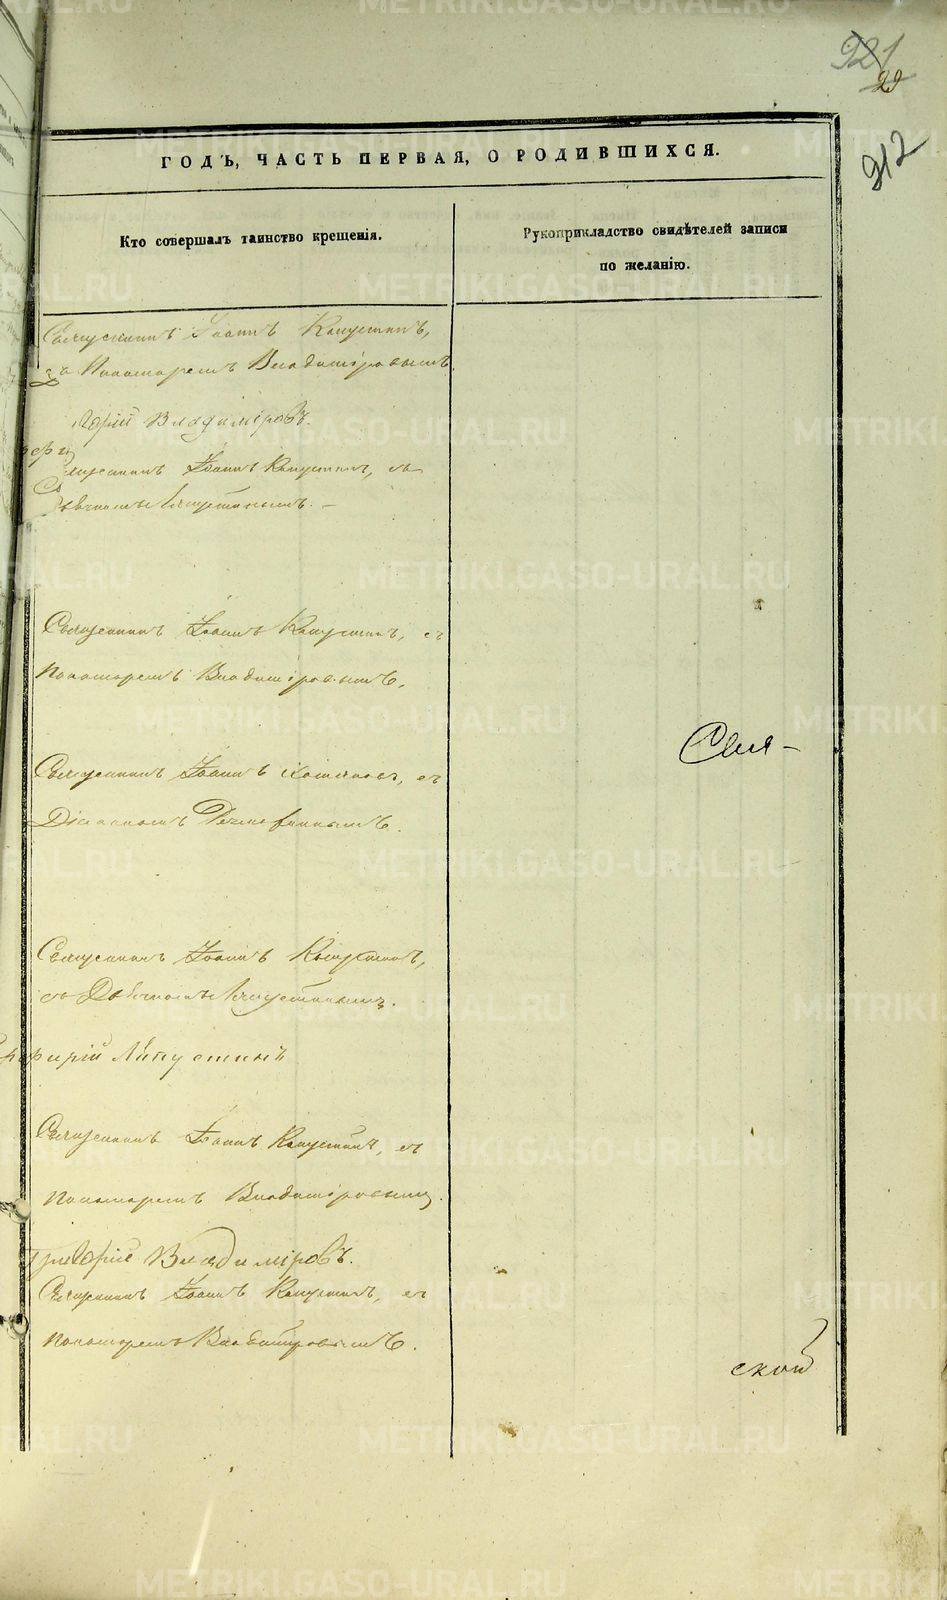 921
29
912
ГОДЪ, ЧАСТЬ ПЕРВАЯ, О РОДИВШИХСЯ.
Кто совершалъ таинство крещенія.
Рукоприкладство свидѣтелей записи
по желанію.
Священникъ Іоаннъ Капустинъ,
Пономаремъ Владиміровымъ
Владиміровъ.
Священникъ Іоаннъ Капустинъ, съ
Священникъ Іоаннъ Капустинъ, съ
Пономаремъ Владиміровымъ.
Свя-
Священникъ Іоаннъ съ
Діакономъ
Священникъ Іоаннъ Капустинъ,
съ
Священникъ Іоаннъ Капустинъ, съ
Пономаремъ Владиміровымъ.
Григорій Владиміровъ.
Священникъ Іоаннъ Капустинъ, съ
Пономаремъ Владиміровымъ.
ской
METRIKI.GASO-URAL.RU